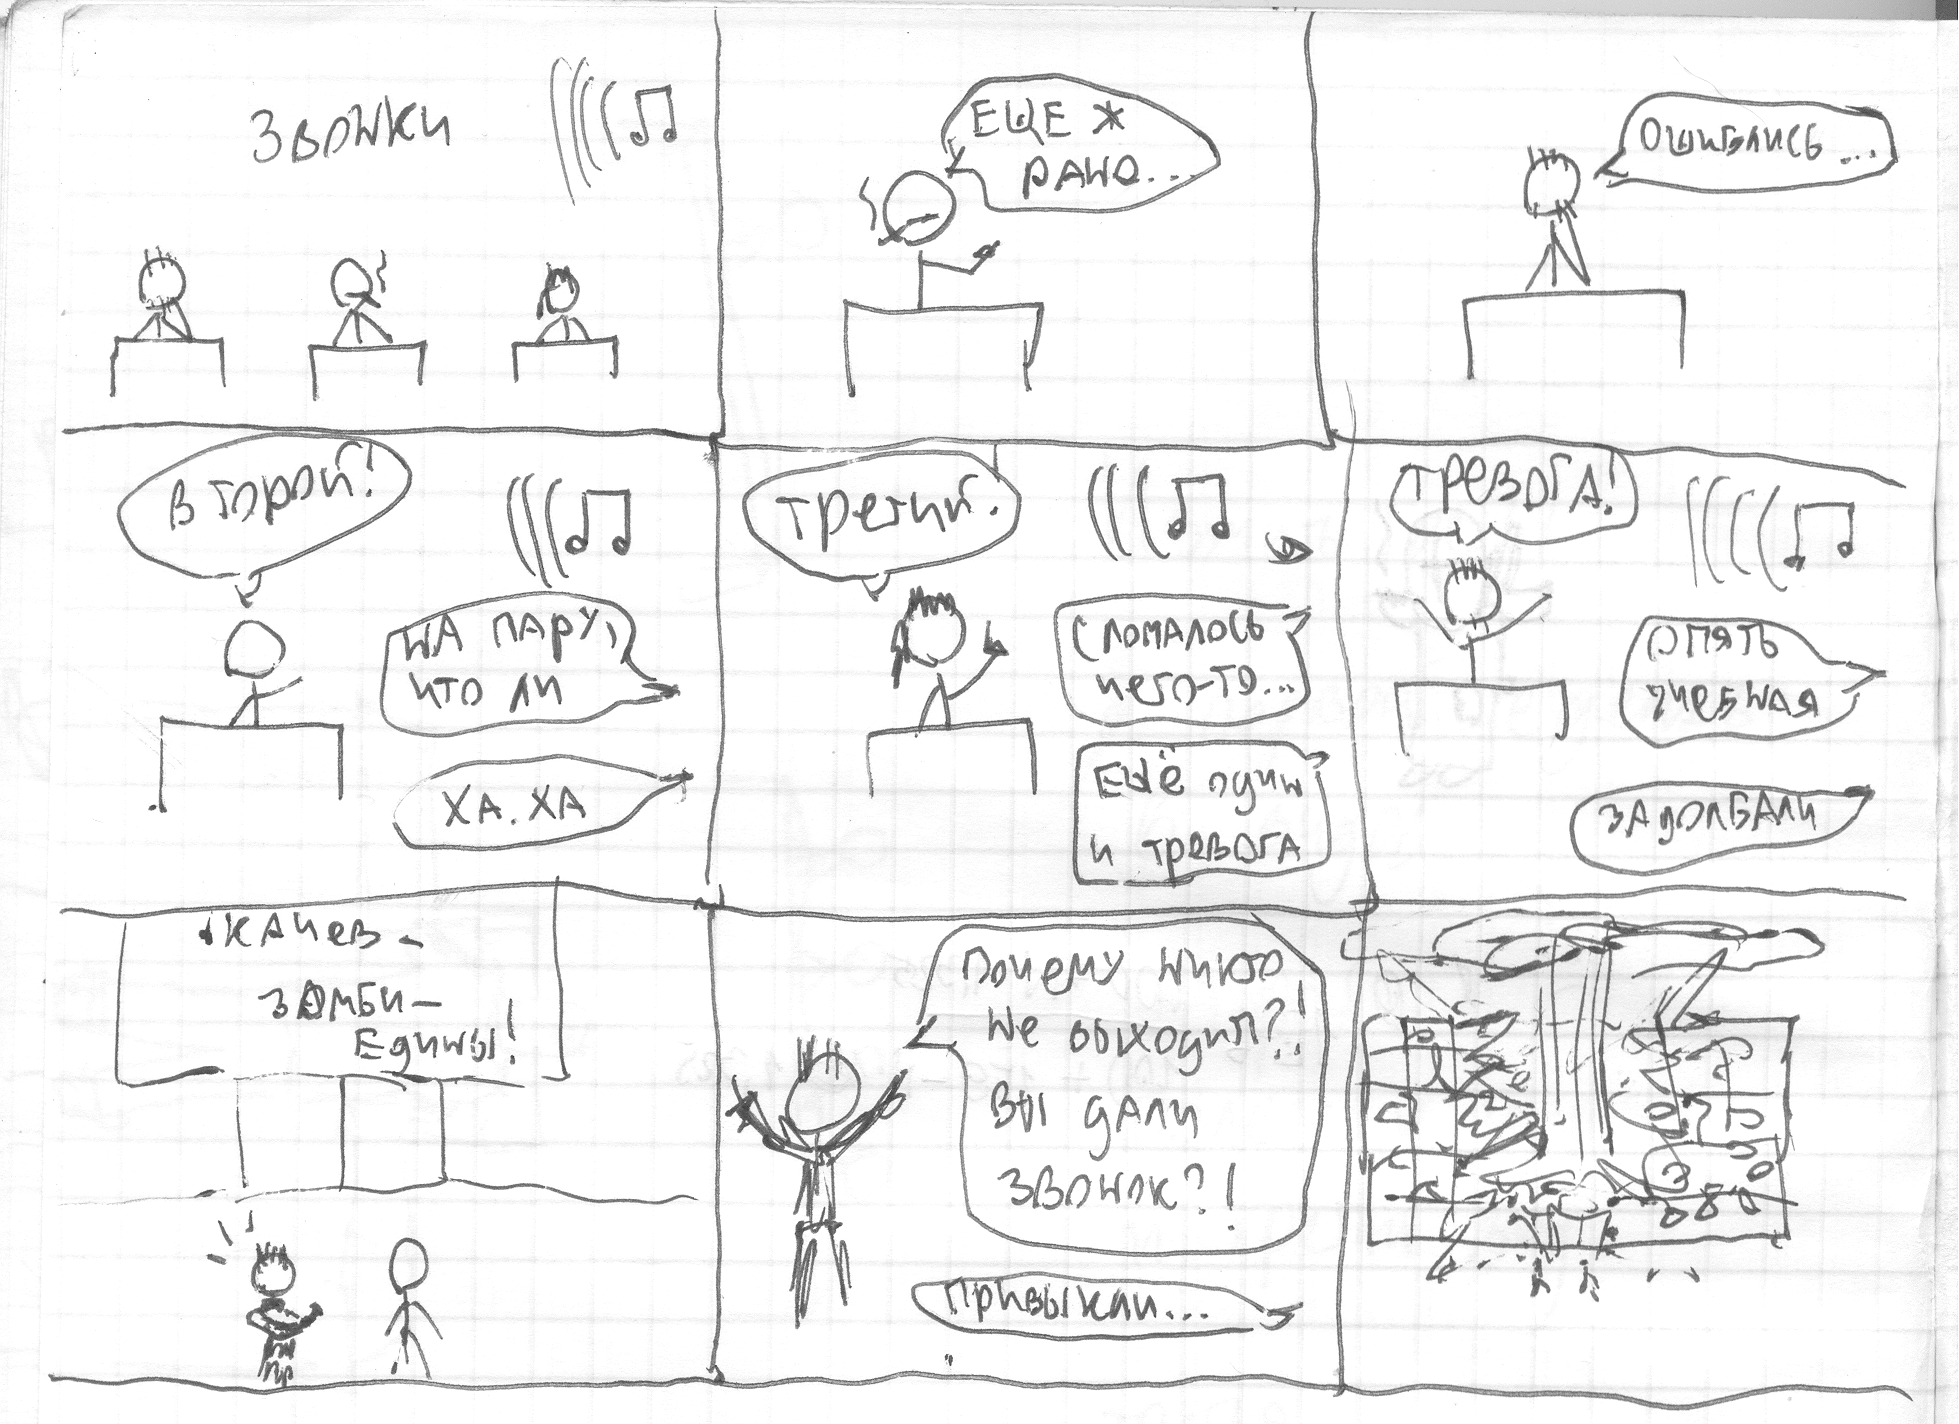 Звонки
ЕЩЕ Ж
РАНО...
ОШИБЛИСЬ...
ВТОРОЙ!
НА ПАРУ,
ЧТО ЛИ
ХА. ХА
ТРЕТИЙ.
СЛОМАЛОСЬ
чего-то...
ЕЩё один
и тревога
ТРЕВОГА!
ОПЯТЬ
учебная
ЗАДОЛБАЛИ
ЗОМБИ-
Едины!
Почему никто
не выходил?!
Вы дали
звонок?!
Привыкли...